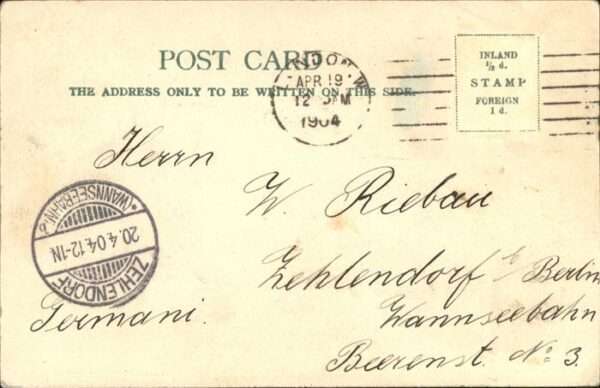 POST CARD
THE ADDRESS ONLY TO BE WRITTEN ON THIS SIDE.
APR 19
12 AM
1904
INLAND
½ d.
STAMP
FOREIGN
1 d.
Herrn
W. Riebau
Zehlendorf b/ Berlin
Wannseebahn
Beerenst. No: 3.
Germani.
(WANNSEEBAHN)
20.4.04.12-1N
ZEHLENDORF